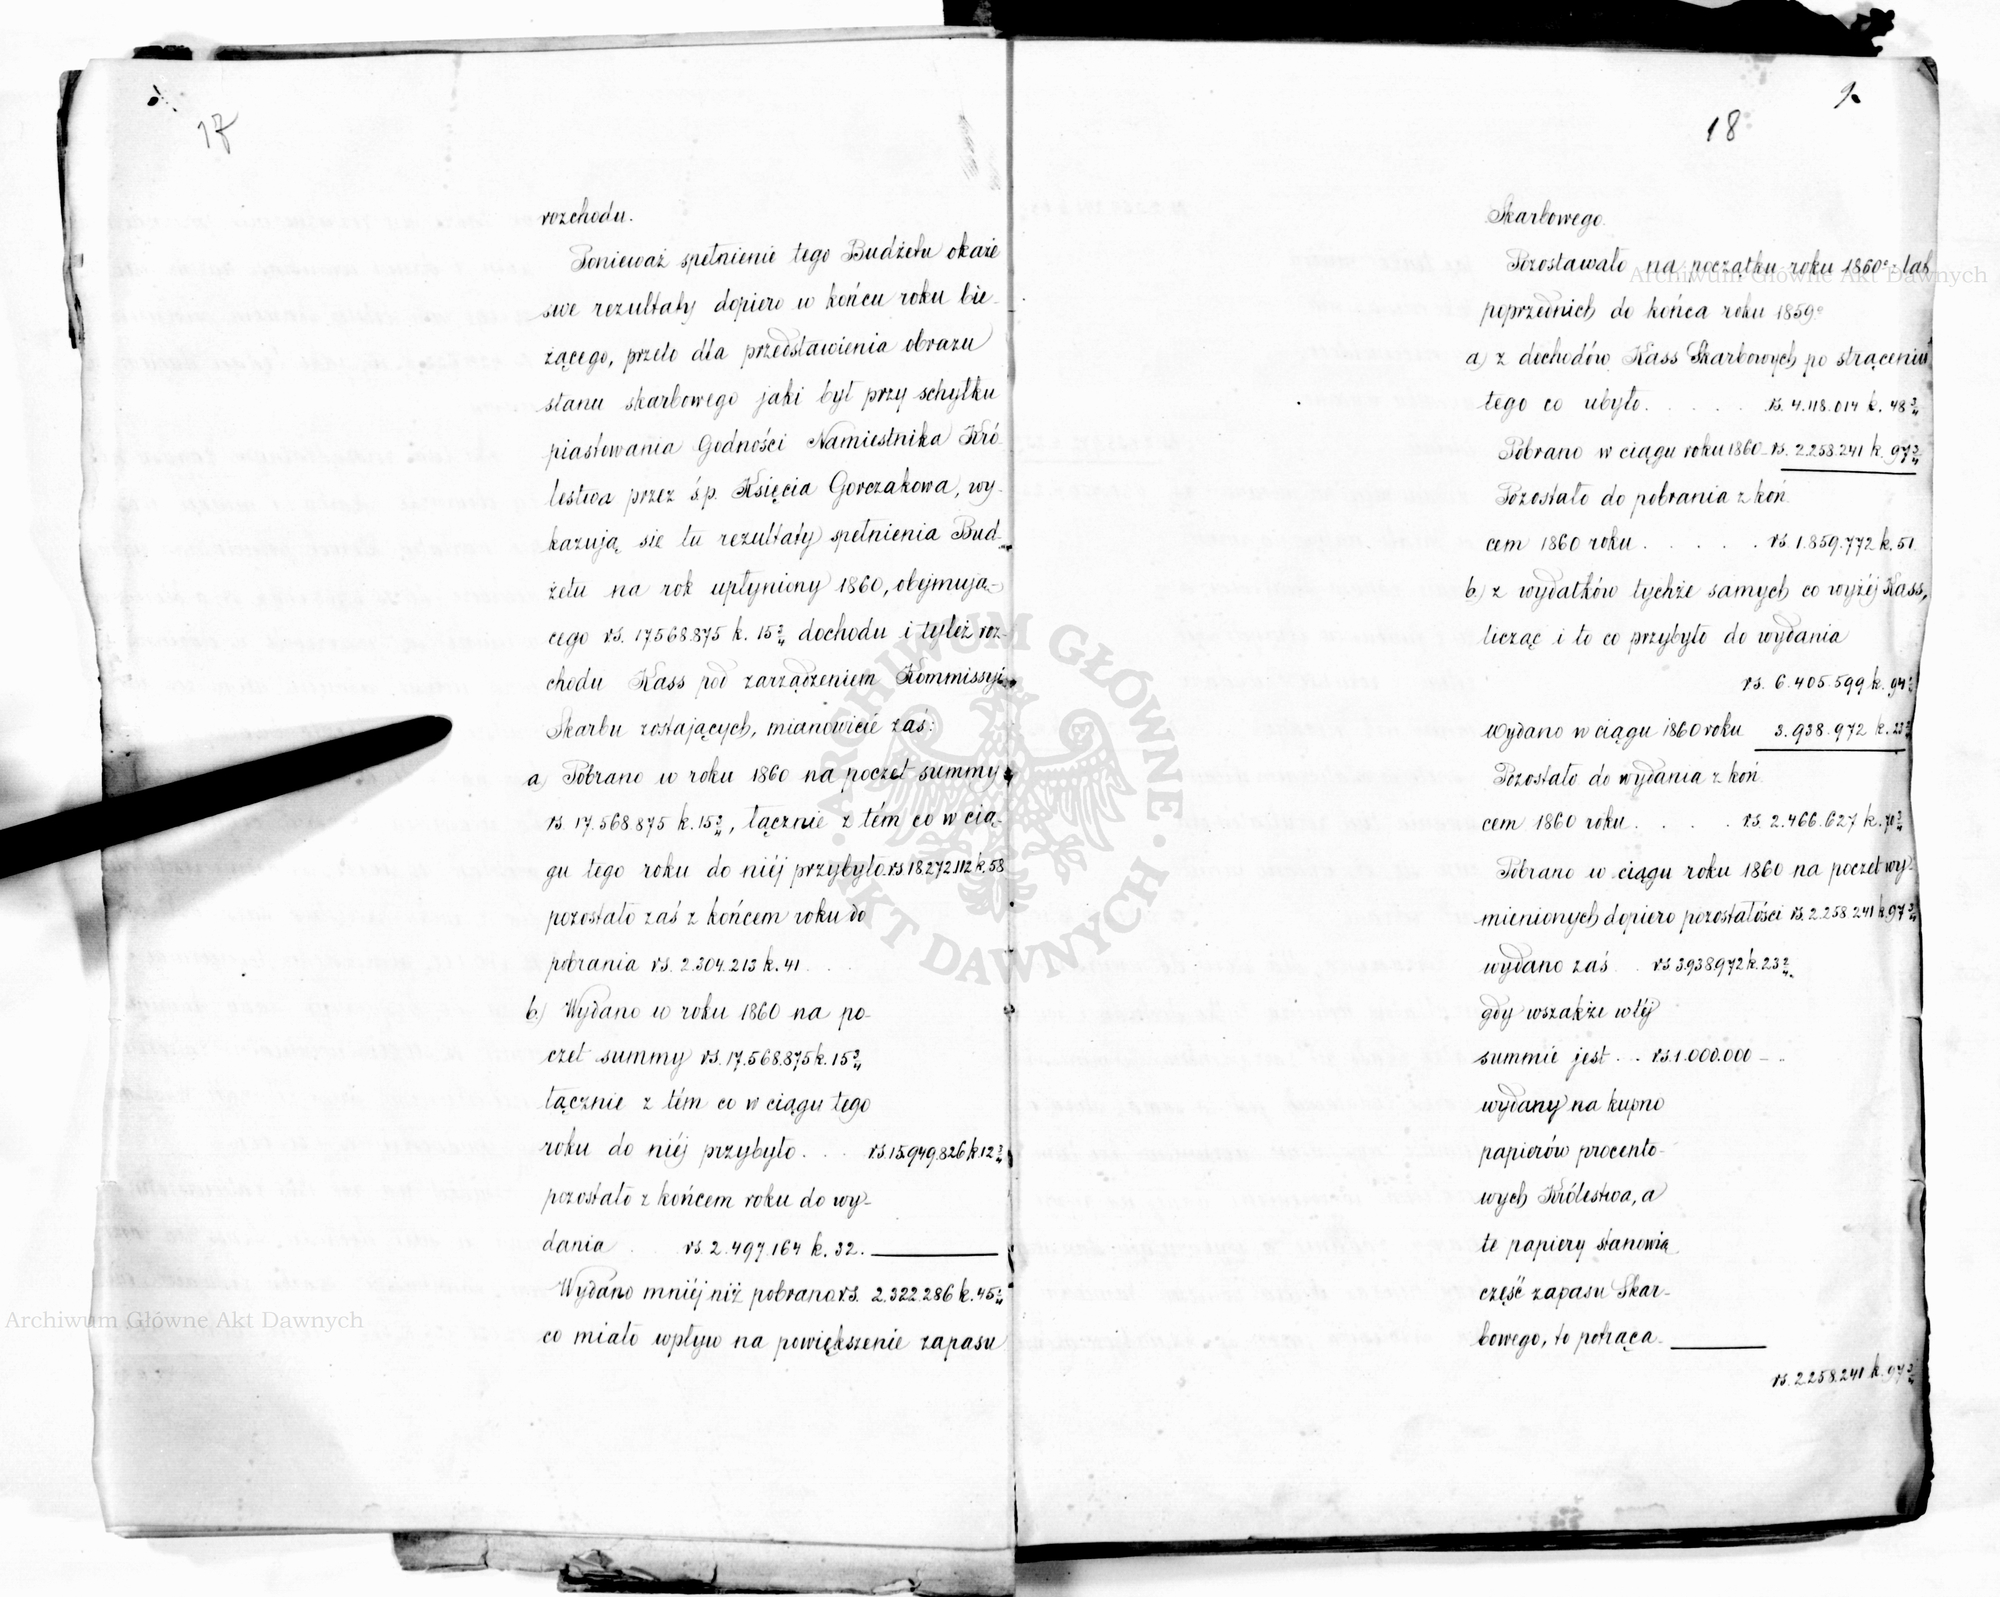 17
rozchodu.
Ponieważ spełnienie tego Budżetu okaże
swe rezultaty dopiero w końcu roku bie-
żącego, przeto dla przedstawienia obrazu
stanu skarbowego jaki był przy schyłku
piastowania Godności Namiestnika Kró-
lestwa przez ś.p. Księcia Gorczakowa, wy-
kazują się tu rezultaty spełnienia Bud-
żetu na rok upłyniony 1860, obejmują-
cego rs. 17.568.875 k. 15 3/4 dochodu i tyleż roz-
chodu Kass pod zarządzeniem Kommissyi
Skarbu zostających, mianowicie zaś:
a) Pobrano w roku 1860 na poczet summy
rs. 17.568.875 k. 15 3/4, łącznie z tém co w cią-
gu tego roku do niéj przybyło rs 18.272.112 k. 58
pozostało zaś z końcem roku do
pobrania rs. 2.304.213 k. 41 . . .
b.) Wydano w roku 1860 na po-
czet summy rs. 17.568.875 k. 15 3/4
łącznie z tém co w ciągu tego
roku do niéj przybyło . . . rs. 15.949.826 k. 12 3/4
pozostało z końcem roku do wy-
dania . . rs. 2.497.164 k. 32.
Wydano mniéj niż pobrano rs. 2.322.286 k. 45 1/4
co miało wpływ na powiększenie zapasu
9.
18
Skarbowego.
Pozostawało na początku roku 1860 z lat
poprzednich do końca roku 1859o
a) z dochodów Kass Skarbowych po strąceniu
tego co ubyło . . . . . rs. 4.118.014 k. 48 3/4
Pobrano w ciągu roku 1860 rs. 2.258.241 k. 97 3/4
Pozostało do pobrania z koń
cem 1860 roku . . . . . rs 1.859.772 k. 51
b.) z wydatków tychże samych co wyżéj Kass,
licząc i to co przybyło do wydania
rs. 6.405.599 k. 94
Wydano w ciągu 1860 roku 3.938.972 k. 23
Pozostało do wydania z koń
cem 1860 roku . . . . rs. 2.466.627 k.
Pobrano w ciągu roku 1860 na poczet wy-
mienionych dopiero pozostałości rs. 2.258.241 k. 97 3/4
wydano zaś . . rs 3.938.972 k. 23
gdy wszakże w téj
summie jest . . rs. 1.000.000 –
wydany na kupno
papierów procento-
wych Królestwa, a
te papiery stanowią
część zapasu Skar-
bowego, to potrąca
rs. 2.258.241 k. 97 3/4
Archiwum Główne Akt Dawnych
Archiwum Główne Akt Dawnych
ARCHIWUM GŁÓWNE · AKT DAWNYCH ·